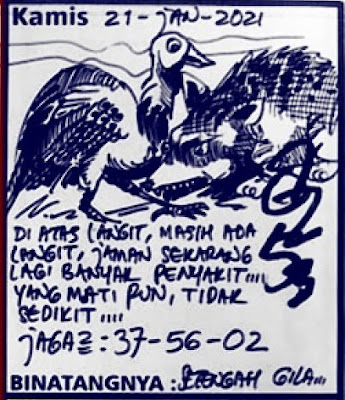 Kamis 21-JAN-2021
DI ATAS LANGIT, MASIH ADA
LANGIT, JAMAN SEKARANG
LAGI BANYAK PENYAKIT....
YANG MATI PUN, TIDAK
SEDIKIT....
JAGA2 : 37-56-02
BINATANGNYA : SETENGAH GILA...